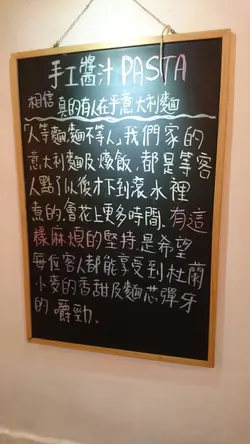 手工醬汁 PASTA
相信 真的有人在乎意大利麵
「人等麵,麵不等人」我們家的
意大利麵及燉飯,都是等客
人點了以後才下到滾水裡
煮的,會花上更多時間.有這
樣麻煩的堅持,是希望
每位客人都能享受到杜蘭
小麥的香甜及麵芯彈牙
的 嚼勁.